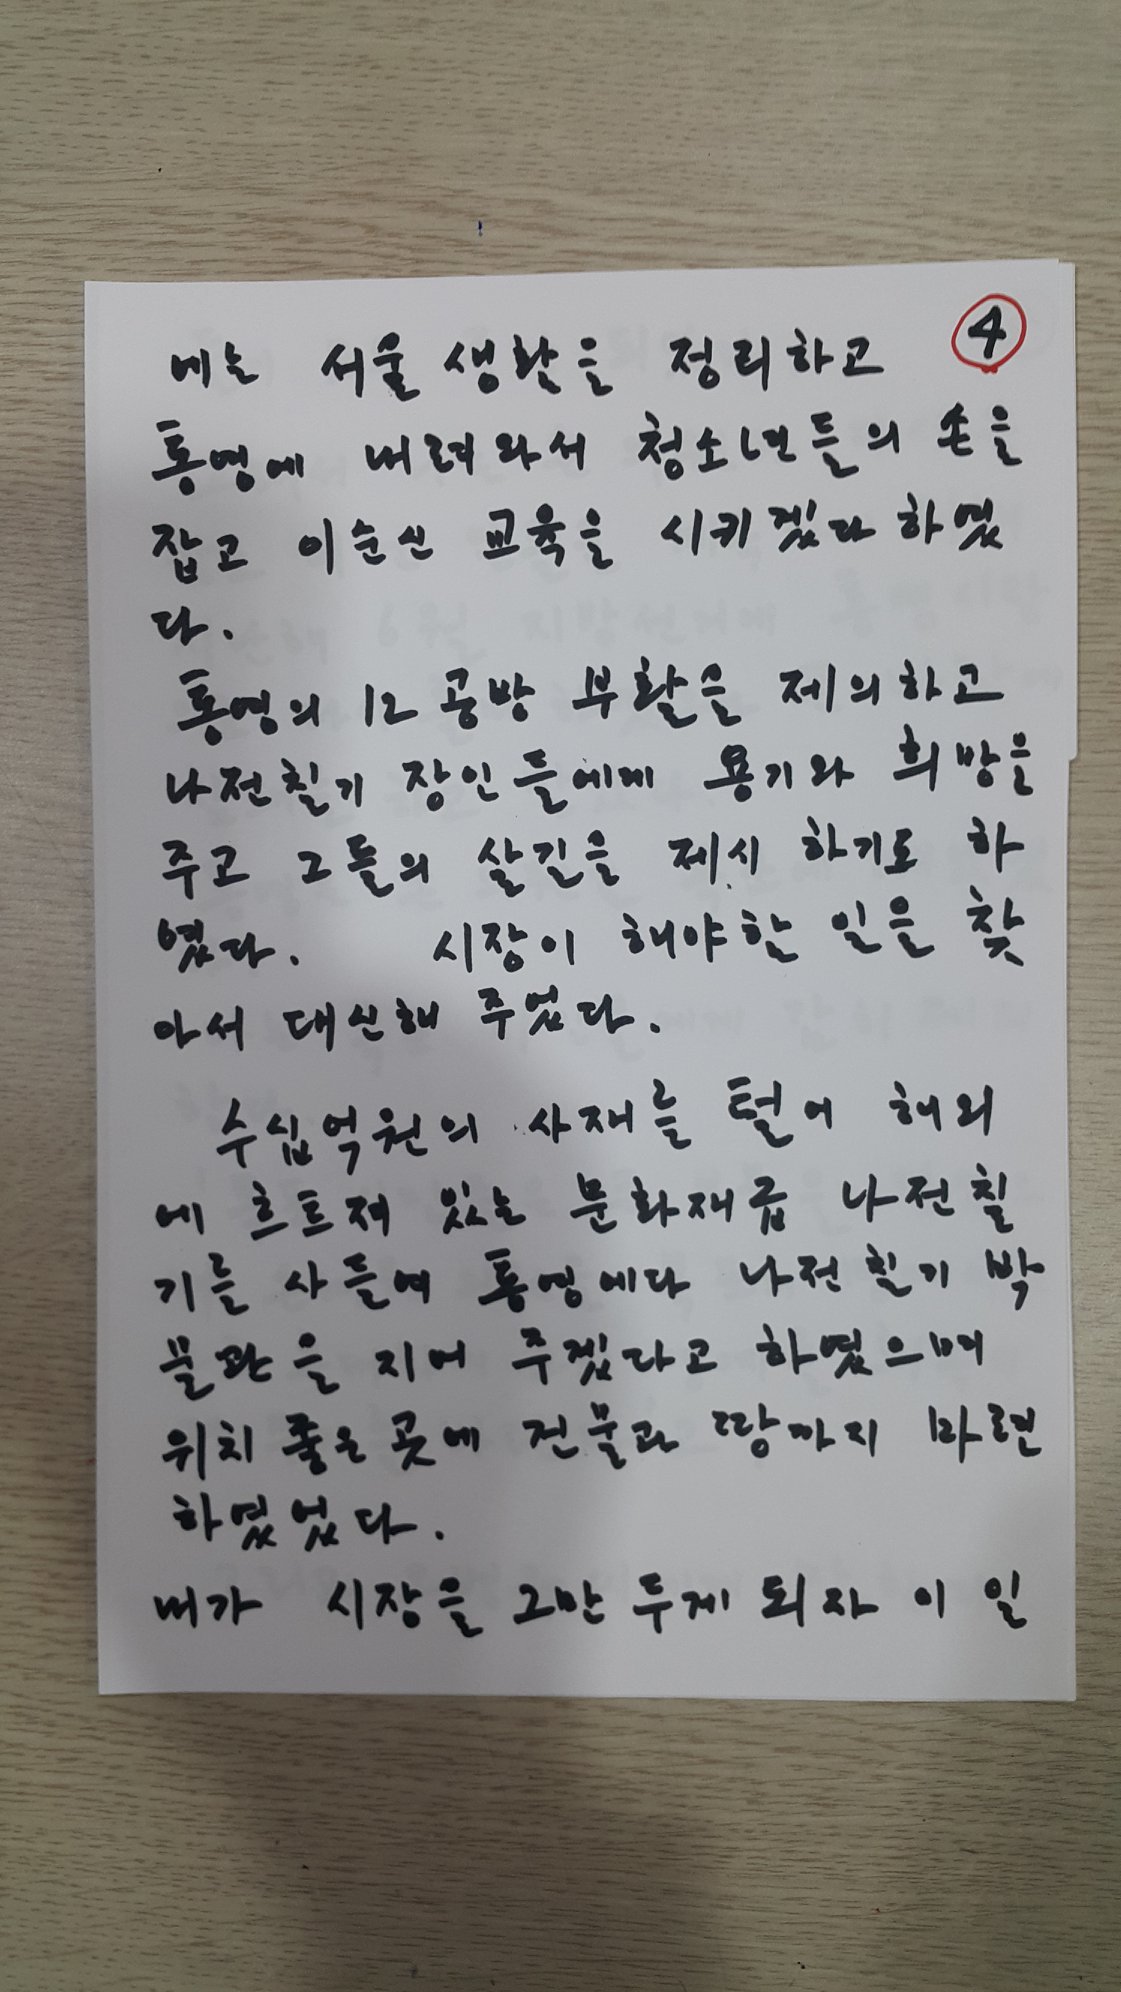 4
에는 서울 생활을 정리하고
통영에 내려와서 청소년들의 손을
잡고 이순신 교육을 시키겠다 하였
다.
통영의 12공방 부활을 제의하고
나전칠기 장인들에게 용기와 희망을
주고 그들의 살길을 제시 하기로 하
였다. 시장이 해야할 일을 찾
아서 대신해 주었다.
수십억원의 사재를 털어 해외
에 흐트져 있는 문화재급 나전칠
기를 사들여 통영에다 나전칠기 박
물관을 지어 주겠다고 하였으며
위치 좋은 곳에 건물과 땅까지 마련
하였었다.
내가 시장을 그만 두게 되자 이 일